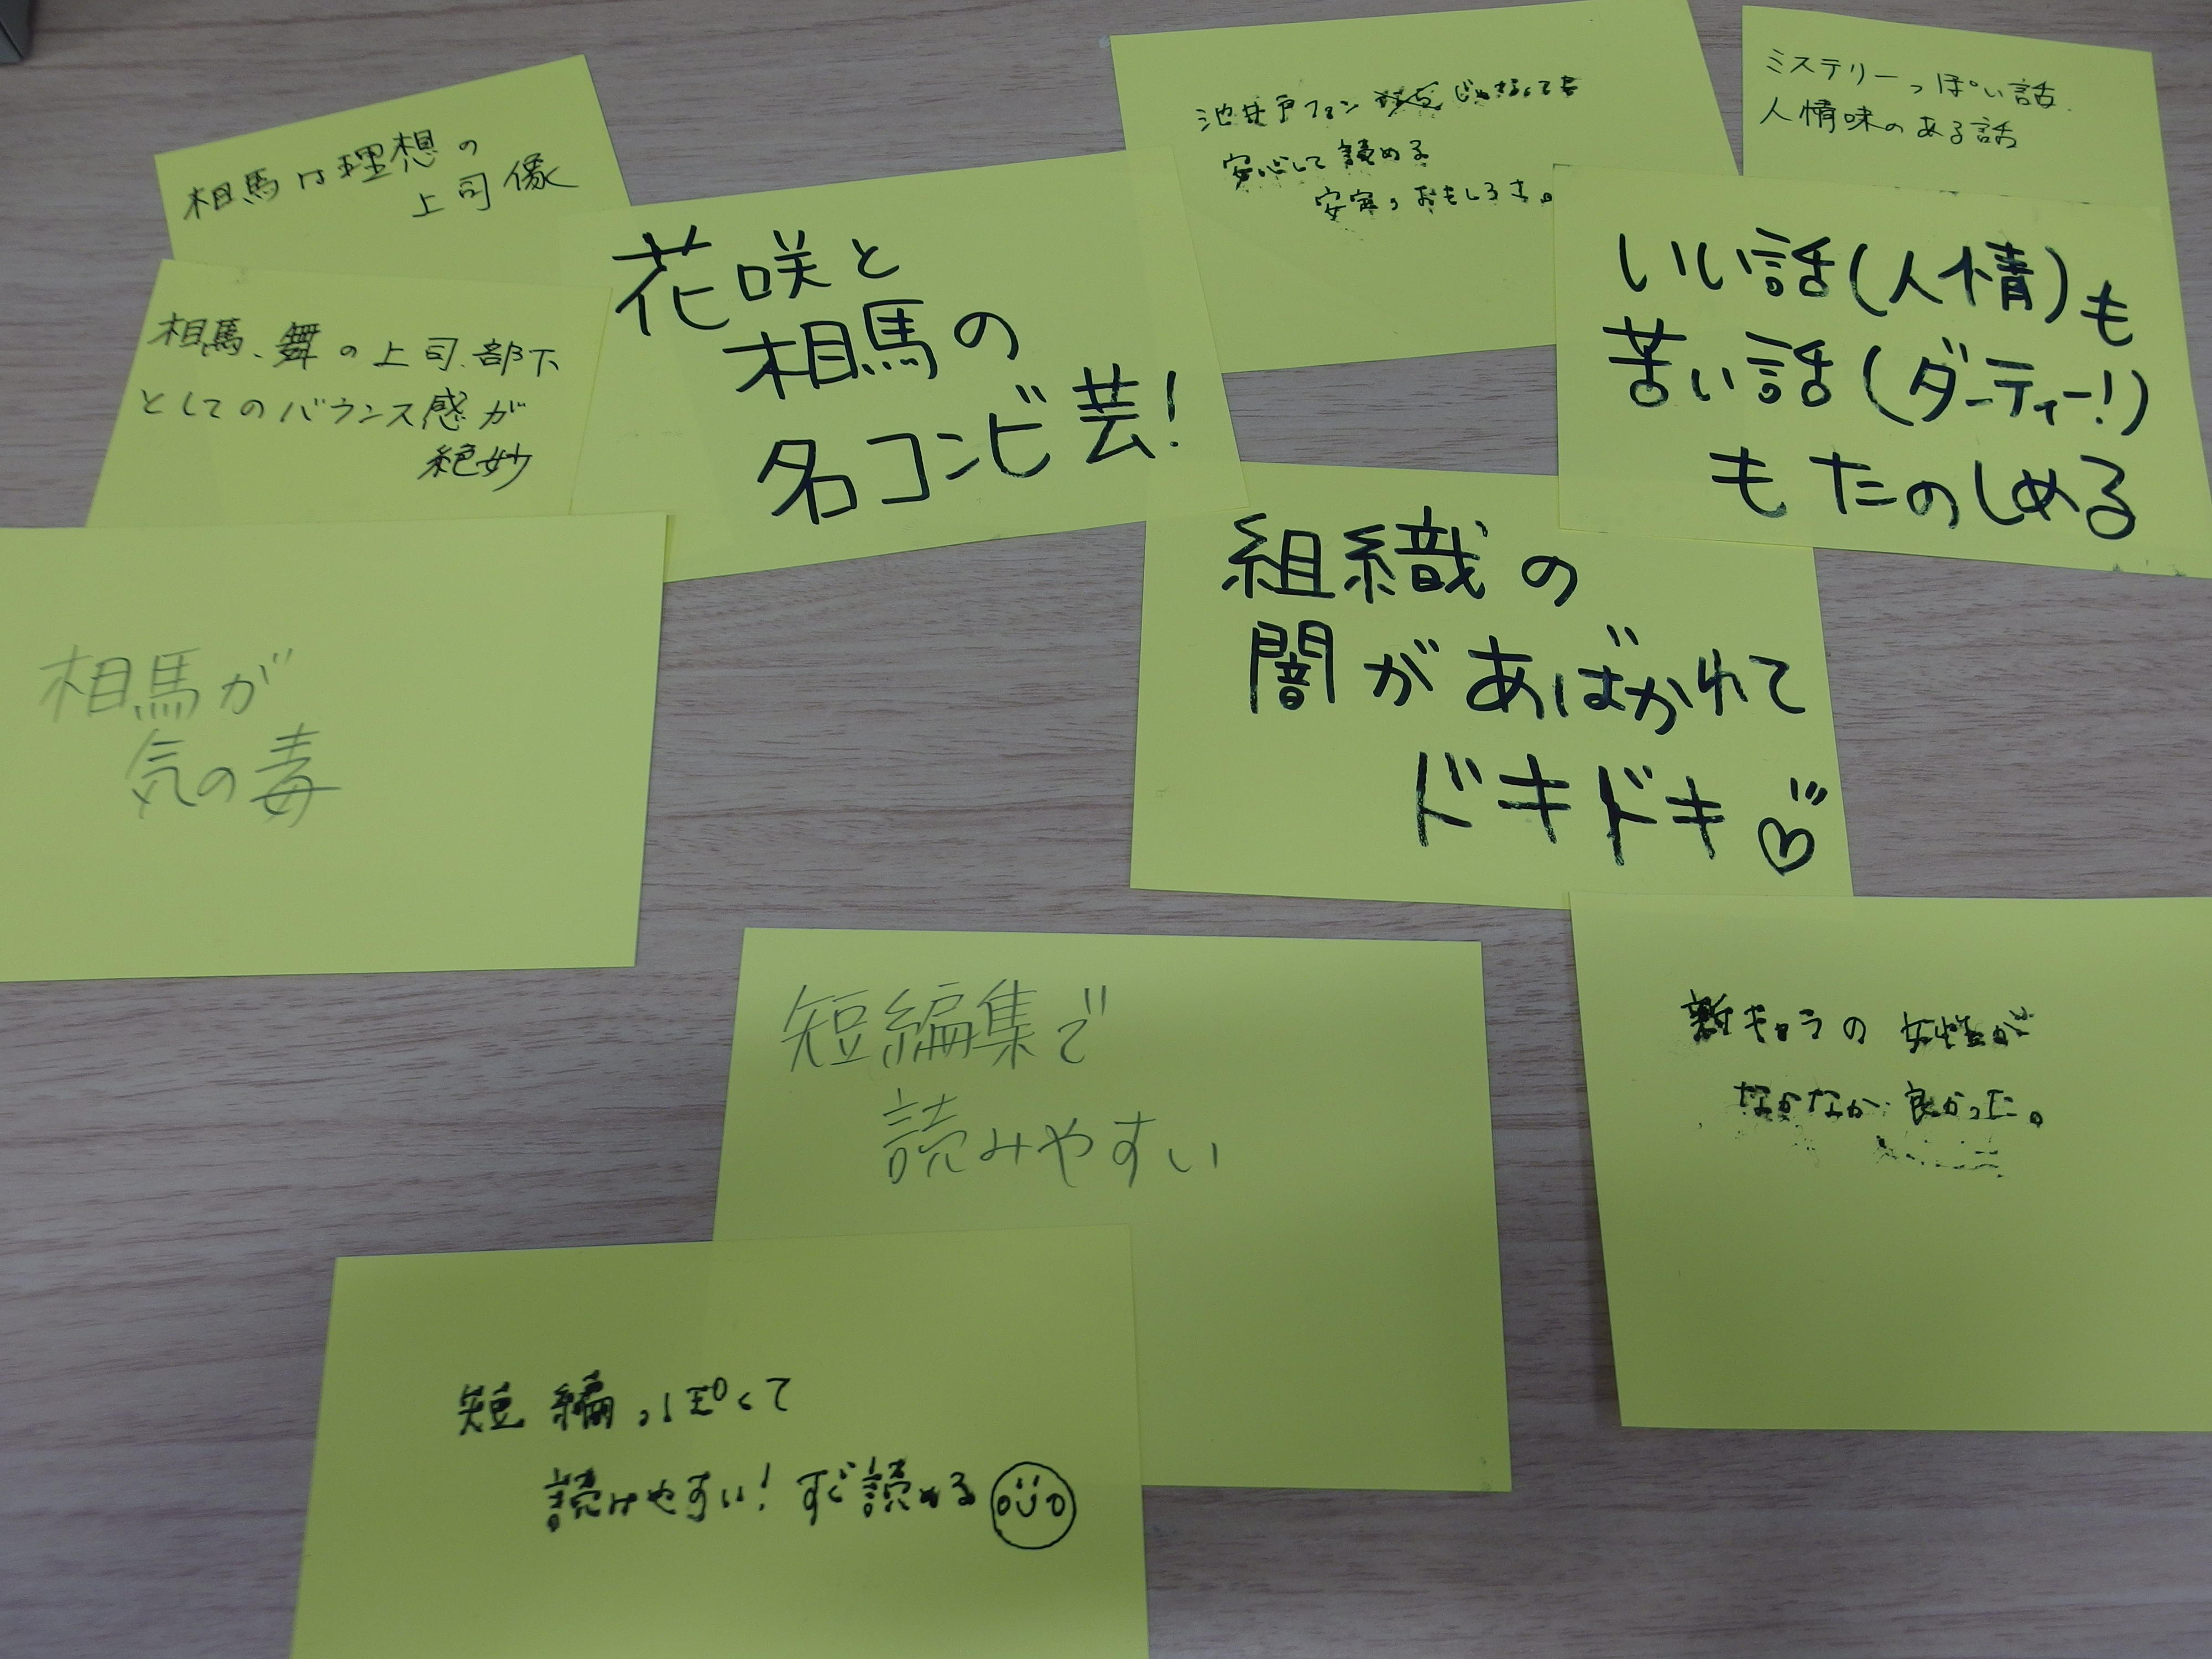 相馬は理想の
上司像
相馬、舞の上司、部下
としてのバウンス感が
絶妙
花咲と
相馬の
名コンビ芸！
池井戸ファン じゃなくても
安心して読める
安定のおもしろさ。
ミステリーっぽい話
人情味のある話
いい話(人情)も
苦い話(ダーティー!)
もたのしめる
組織の
闇があばかれて
ドキドキ♡
相馬が
気の毒
短編集で
読みやすい
新キャラの女性が
なかなか良かった。
短編っぽくて
読みやすい！すぐ読める